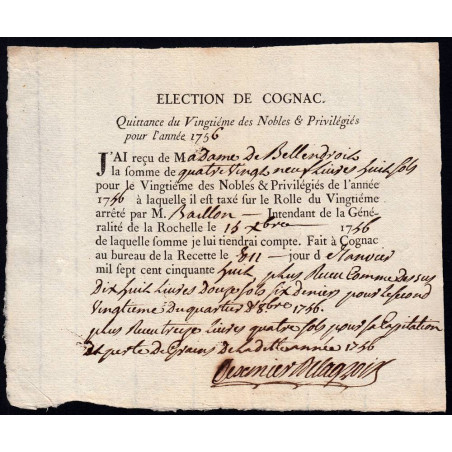 ELECTION DE COGNAC.
Quittance du Vingtiéme des Nobles & Privilégiés
pour l'année 1756
J'AI reçu de Madame de Bellendroit
la somme de quatre vingt neuf Livres huit sols
pour le Vingtiéme des Nobles & Privilégiés de l'année
1756 à laquelle il est taxé sur le Rolle du Vingtiéme
arrêté par M. Baillon Intendant de la Géné-
ralité de la Rochelle le 15 xbre 1756
de laquelle somme je lui tiendrai compte. Fait à Cognac
au bureau de la Recette le jour d Janvier
mil sept cent cinquante huit plus Receu Comme Dessus
Dix huit Livres Douze sols six deniers pour le second
vingtieme du quartier d'8bre 1756.
plus Receu treize Livres quatre sols pour la Capitation
et perte de Grains de Ladite année 1756